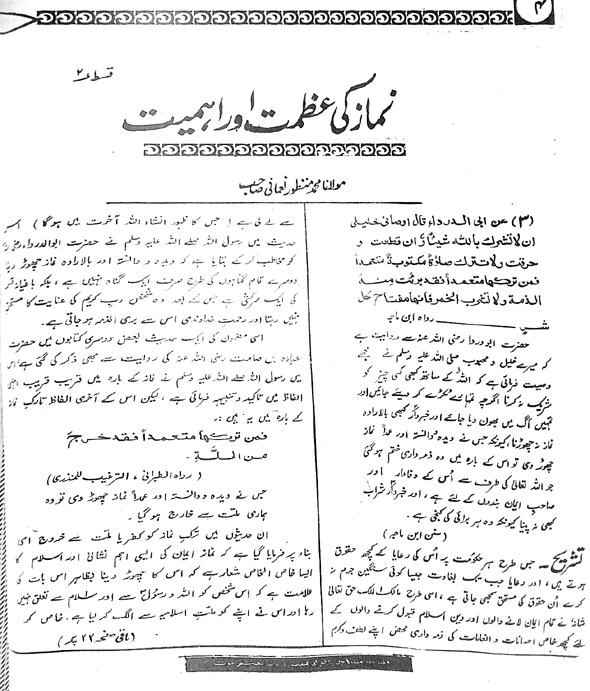 ۴
قسط ۲
نماز کی عظمت اور اہمیت
مولانا محمد منظور نعمانی صاحب
(۳) عن ابی الدرداء قال اوصانی خلیلی
ان لا تشرك بالله شیئاً وان قطعت و
حرقت ولا تترك صلاة مكتوبة متعمداً
فمن تركها متعمداً فقد برئت منه
الذمة ولا تشرب الخمر فانها مفتاح كل
شر رواہ ابن ماجہ
حضرت ابودردا رضی اللہ عنہ سے روایت ہے
کہ میرے خلیل و محبوب صلی اللہ علیہ وسلم نے مجھے
وصیت فرمائی ہے کہ اللہ کے ساتھ کبھی کسی چیز کو
شریک نہ کرنا اگرچہ تمہارے ٹکڑے کر دیئے جائیں اور
تمہیں آگ میں بھون دیا جائے اور خبردار کبھی بالارادہ
نماز نہ چھوڑنا کیونکہ جس نے دیدہ و دانستہ اور عمداً نماز
چھوڑ دی تو اس کے بارہ میں وہ ذمہ داری ختم ہو گئی
جو اللہ تعالیٰ کی طرف سے اُس کے وفادار اور
صاحب ایمان بندوں کے لئے ہے، اور خبردار شراب
کبھی نہ پینا کیونکہ وہ ہر برائی کی کنجی ہے۔
(سنن ابن ماجہ)
تشریح۔ جس طرح ہر حکومت پر اُس کی رعایا کے کچھ حقوق
ہوتے ہیں، اور رعایا جب تک بغاوت جیسا کوئی سنگین جرم نہ
کرے اُن حقوق کی مستحق سمجھی جاتی ہے، اسی طرح مالک الملک حق تعالیٰ
شانہٗ نے تمام ایمان لانے والوں اور دین اسلام قبول کرنے والوں کے
لئے کچھ خاص احسانات و انعامات کی ذمہ داری محض اپنے لطف و کرم
سے لے لی ہے (جس کا ظہور انشاء اللہ آخرت میں ہوگا) اس
حدیث میں رسول اللہ صلے اللہ علیہ وسلم نے حضرت ابوالدرداء رضی
کو مخاطب کر کے بتایا ہے کہ دیدہ و دانستہ اور بالارادہ نماز چھوڑ دینا
دوسرے تمام گناہوں کی طرح صرف ایک گناہ نہیں ہے، بلکہ باغیانہ قسم
کی ایک سرکشی ہے جس کے بعد وہ شخص رب کریم کی عنایت کا مستحق
نہیں رہتا اور رحمت خداوندی اس سے بری الذمہ ہو جاتی ہے۔
اسی مضمون کی ایک حدیث بعض دوسری کتابوں میں حضرت
عبادہ بن صامت رضی اللہ عنہ کی روایت سے بھی ذکر کی گئی ہے اس
میں رسول اللہ صلے اللہ علیہ وسلم نے نماز کے بارہ میں قریب قریب انہی
الفاظ میں تاکید و تنبیہ فرمائی ہے، لیکن اس کے آخری الفاظ تارک نماز
کے بارہ میں یہ ہیں:
فمن تركها متعمداً فقد خرج
من الملة۔
(رواہ الطبرانی، الترغیب للمنذری)
جس نے دیدہ و دانستہ اور عمداً نماز چھوڑ دی تو وہ
ہماری ملت سے خارج ہو گیا۔
ان حدیثوں میں ترک نماز کو کفر یا ملت سے خروج اسی
بناء پر فرمایا گیا ہے کہ نماز ایمان کی ایسی اہم نشانی اور اسلام کا
ایسا خاص الخاص شعار ہے کہ اس کا چھوڑ دینا بظاہر اس بات کی
علامت ہے کہ اس شخص کو اللہ و رسول سے اور اسلام سے تعلق نہیں
رہا اور اس نے اپنے کو ملت اسلامیہ سے الگ کر لیا ہے۔ خاص کر
(باقی صفحہ ۲۲ پر)